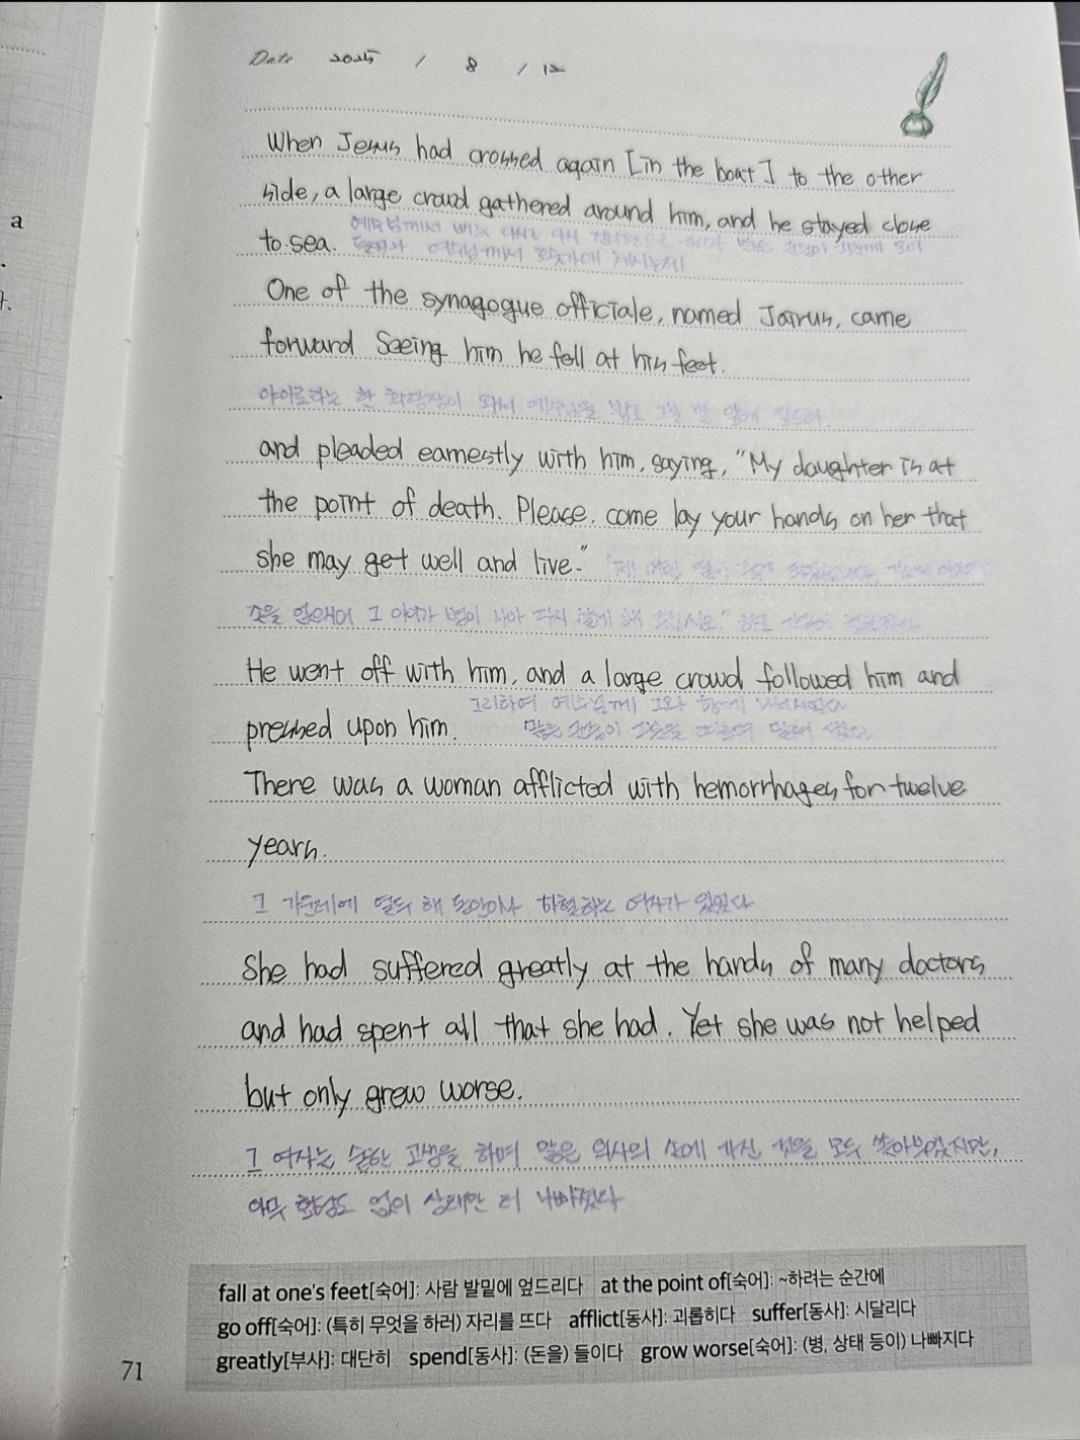 a
Date 2025 / 8 / 12
When Jesus had crossed again [in the boat] to the other
side, a large crowd gathered around him, and he stayed close
예수님께서 배를 타시고 다시
to sea.
One of the synagogue officiale, named Jairus, came
forward Seeing him he fell at his feet.
야이로라는 한 회당장이 와서 예수님을 뵙고 그분 발 앞에 엎드려
and pleaded earnestly with him, saying, "My daughter is at
the point of death. Please, come lay your hands on her that
she may get well and live."
손을 얹으시어 그 아이가 병이 나아 다시 살게 해 주십시오." 하고
He went off with him, and a large crowd followed him and
그리하여 예수님께 그와 함께 나서시었다
pressed upon him. 많은 군중이 그분을 따르며 밀쳐
There was a woman afflicted with hemorrhages for twelve
years.
그 가운데에 열두 해 동안이나 하혈하는 여자가 있었다
She had suffered greatly at the hands of many doctors
and had spent all that she had. Yet she was not helped
but only grew worse.
그 여자는 숱한 고생을 하며 많은 의사의 손에 가진 것을 모두 쏟아부었지만,
아무 효험도 없이 상태만 더 나빠졌다
fall at one's feet[숙어]: 사람 발밑에 엎드리다 at the point of[숙어]: ~하려는 순간에
go off[숙어]: (특히 무엇을 하러) 자리를 뜨다 afflict[동사]: 괴롭히다 suffer[동사]: 시달리다
greatly[부사]: 대단히 spend[동사]: (돈을) 들이다 grow worse[숙어]: (병, 상태 등이) 나빠지다
71